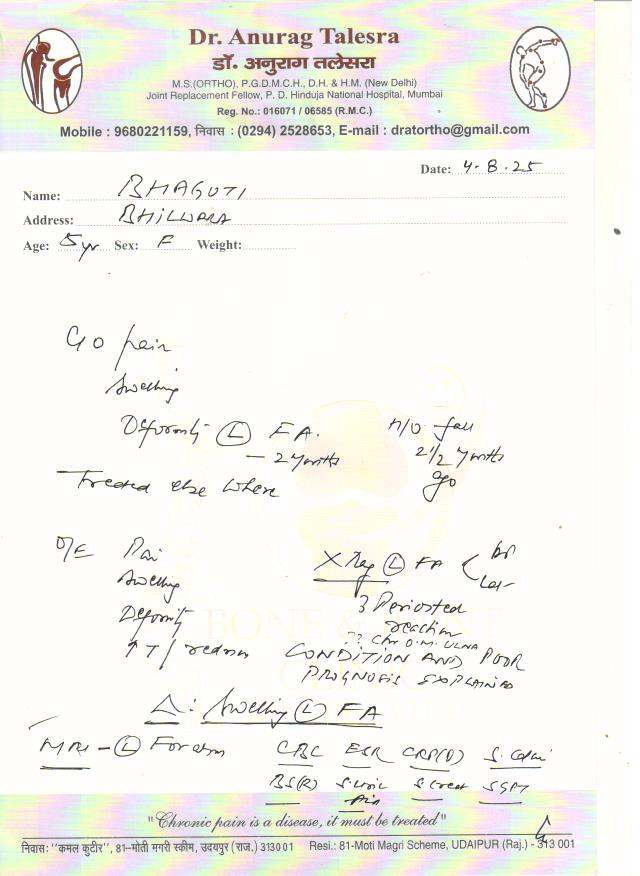 Dr. Anurag Talesra
डॉ. अनुराग तलेसरा
M.S.(ORTHO), P.G.D.M.C.H., D.H. & H.M. (New Delhi)
Joint Replacement Fellow, P. D. Hinduja National Hospital, Mumbai
Reg. No.: 016071 / 06585 (R.M.C.)
Mobile : 9680221159, निवास : (0294) 2528653, E-mail : dratortho@gmail.com
Date: 4.8.25
Name: BHAGUTI
Address: BHILWARA
Age: 5 yr Sex: F Weight:
C/O pain
Swelling
Deformity (L) F A.
- 2 months
H/O fall
2 1/2 months
ago
Treated else where
O/E Pain
Swelling
Deformity
↑ T /
X Ray (L) FA < AP
Lat
? Periosteal
reaction
?? Chr O.M. ULNA
CONDITION AND POOR
PROGNOSIS EXPLAINED
Δ: Swelling (L) FA
MRI - (L) Forearm
CBC ESR CRP(Q)
BS(R) S. Uric Acid S. Creat SGPT
BONE &
"Chronic pain is a disease, it must be treated"
निवास: "कमल कुटीर", 81-मोती मगरी स्कीम, उदयपुर (राज.) 313001 Resi.: 81-Moti Magri Scheme, UDAIPUR (Raj.) - 313 001